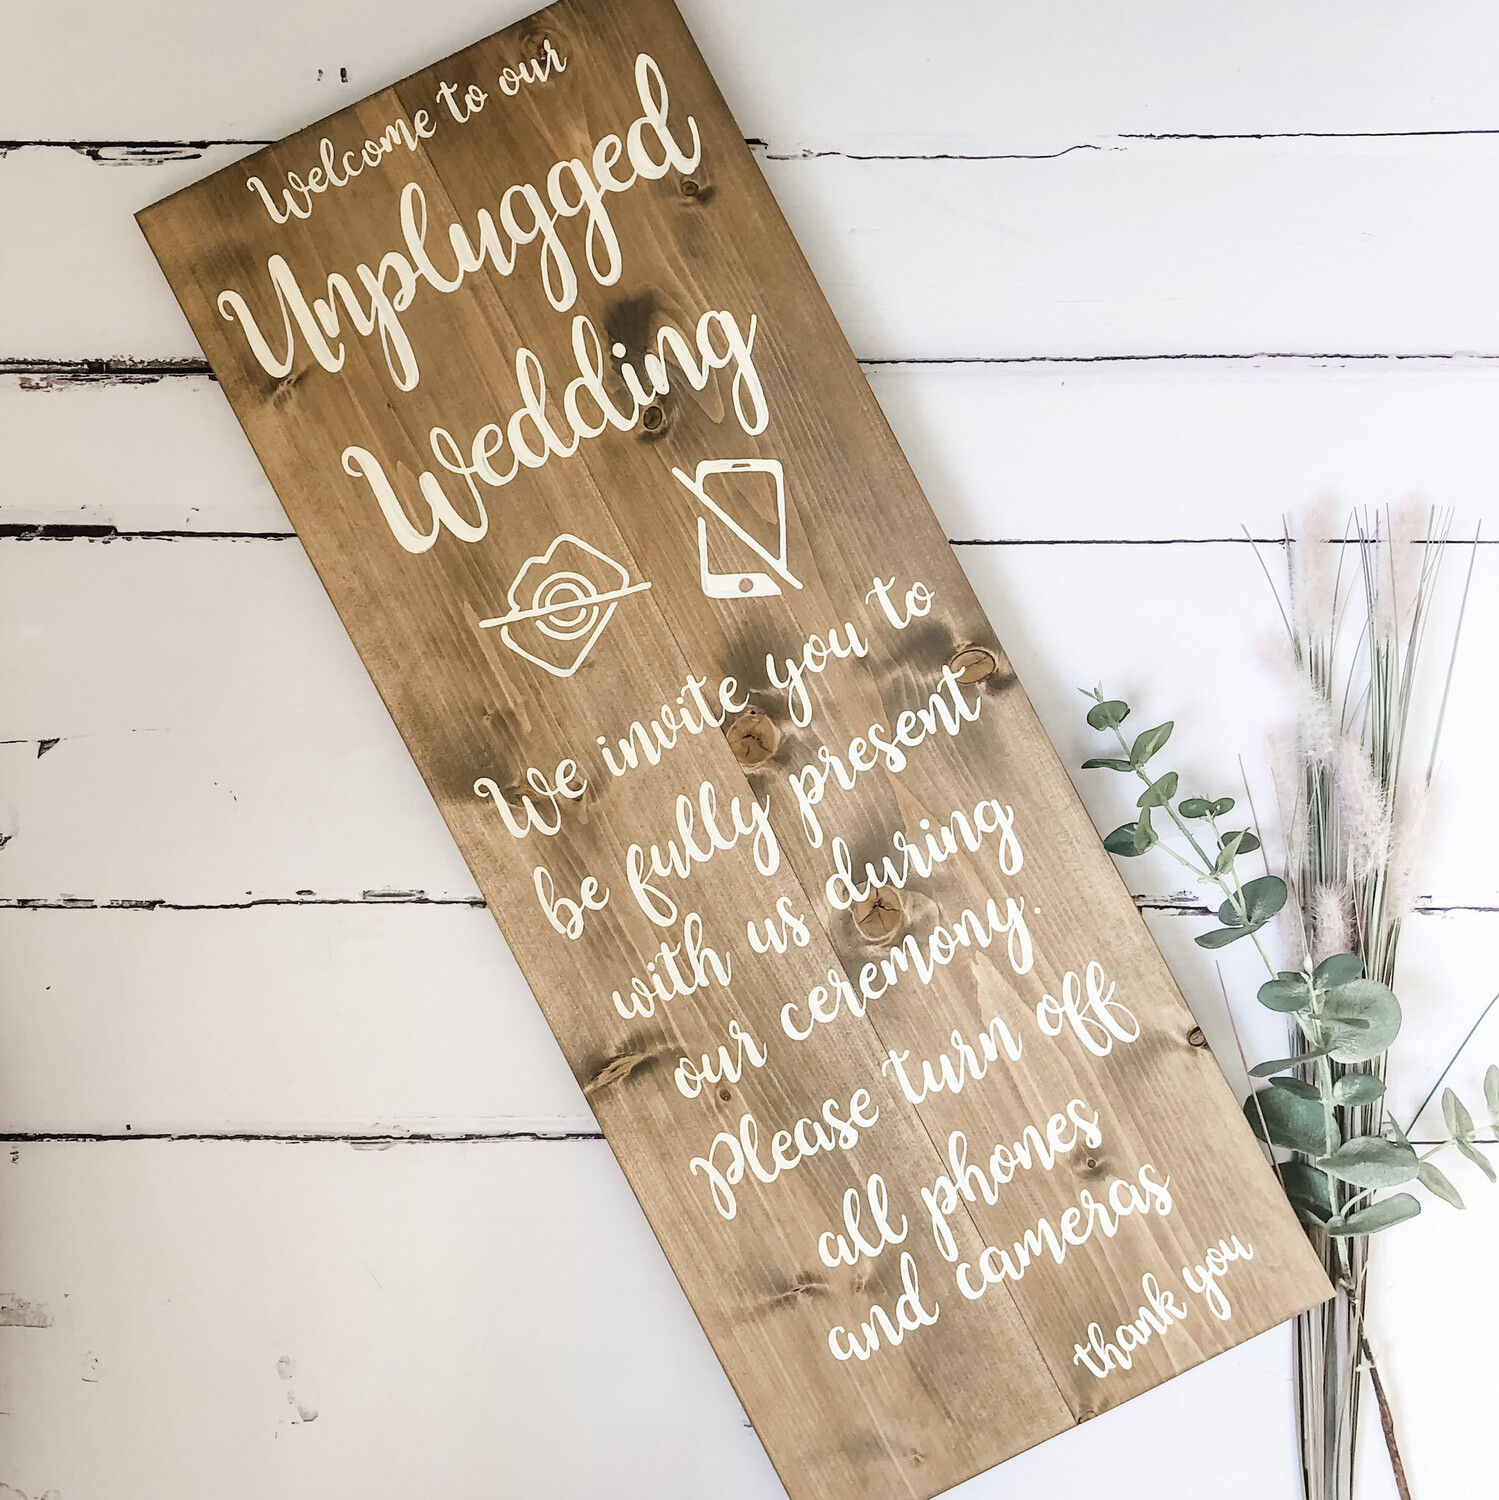 Welcome to our
Unplugged
Wedding
We invite you to
be fully present
with us during
our ceremony.
Please turn off
all phones
and cameras
thank you